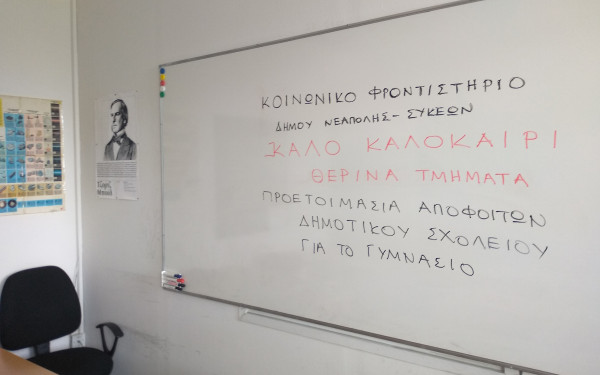 ΚΟΙΝΩΝΙΚΟ ΦΡΟΝΤΙΣΤΗΡΙΟ
ΔΗΜΟΥ ΝΕΑΠΟΛΗΣ - ΣΥΚΕΩΝ
ΚΑΛΟ ΚΑΛΟΚΑΙΡΙ
ΘΕΡΙΝΑ ΤΜΗΜΑΤΑ
ΠΡΟΕΤΟΙΜΑΣΙΑ ΑΠΟΦΟΙΤΩΝ
ΔΗΜΟΤΙΚΟΥ ΣΧΟΛΕΙΟΥ
ΓΙΑ ΤΟ ΓΥΜΝΑΣΙΟ